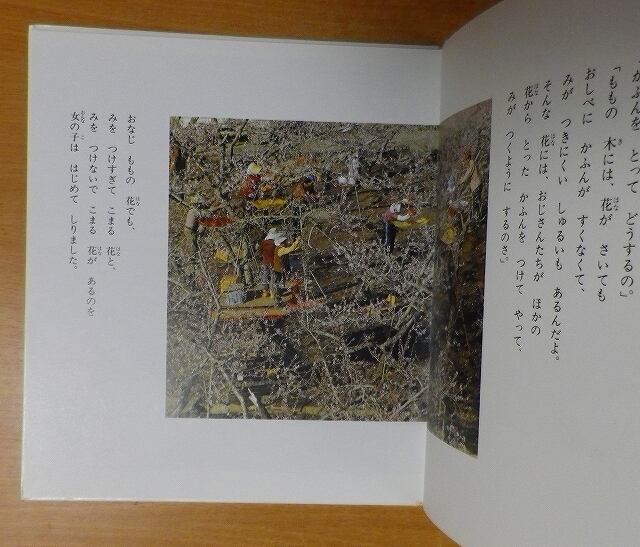 「かふんを とって、どうするの。」
「ももの 木には、花が さいても
おしべに かふんが すくなくて、
みが つきにくい しゅるいも あるんだよ。
そんな 花には、おじさんたちが ほかの
花から とった かふんを つけて やって、
みが つくように するのさ。」
おなじ ももの 花でも、
みを つけすぎて こまる 花と、
みを つけないで こまる 花が あるのを
女の子は はじめて しりました。